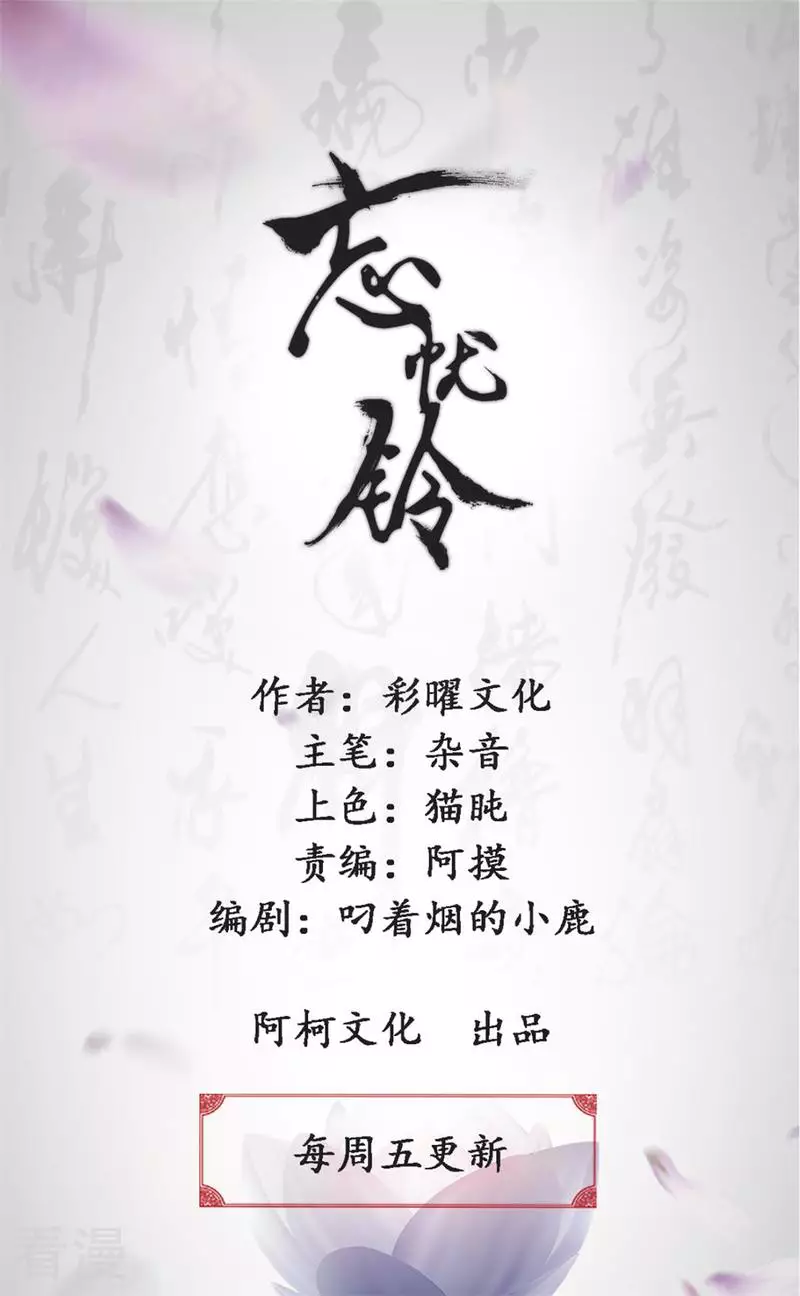 忘忧铃
作者：彩曜文化
主笔：杂音
上色：猫盹
责编：阿摸
编剧：叼着烟的小鹿
阿柯文化　出品
每周五更新
看漫